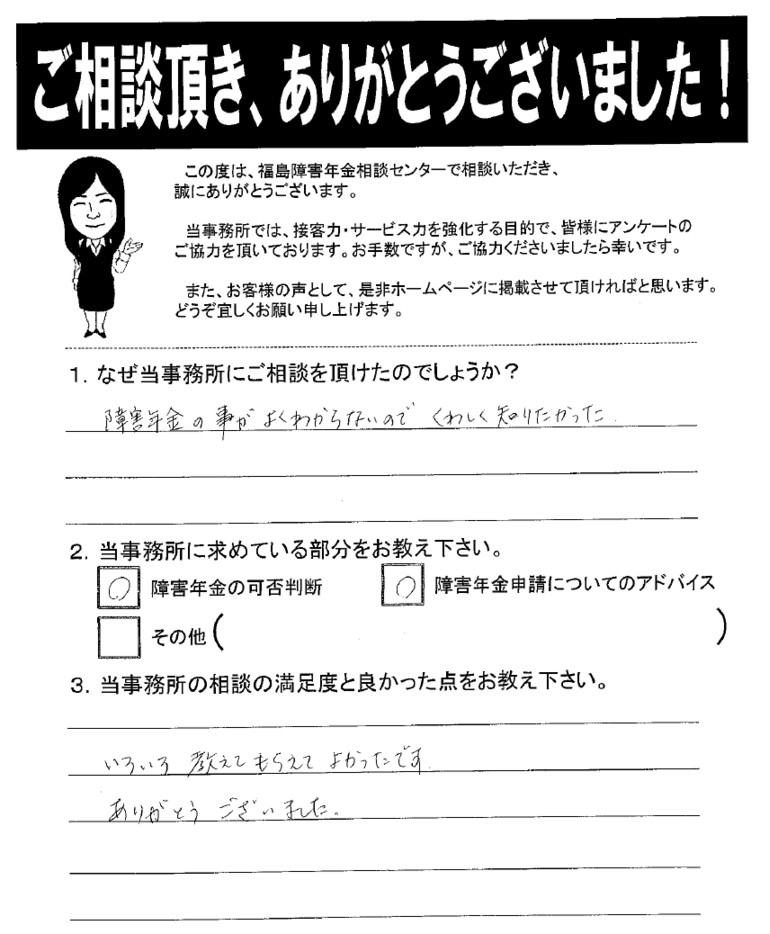 ご相談頂き、ありがとうございました！
この度は、福島障害年金相談センターで相談いただき、
誠にありがとうございます。
当事務所では、接客力・サービス力を強化する目的で、皆様にアンケートの
ご協力を頂いております。お手数ですが、ご協力くださいましたら幸いです。
また、お客様の声として、是非ホームページに掲載させて頂ければと思います。
どうぞ宜しくお願い申し上げます。
1．なぜ当事務所にご相談を頂けたのでしょうか？
障害年金の事がよくわからないので くわしく知りたかった.
2．当事務所に求めている部分をお教え下さい。
○ 障害年金の可否判断 ○ 障害年金申請についてのアドバイス
その他（ ）
3．当事務所の相談の満足度と良かった点をお教え下さい。
いろいろ 教えてもらえて よかったです.
ありがとう ございました.